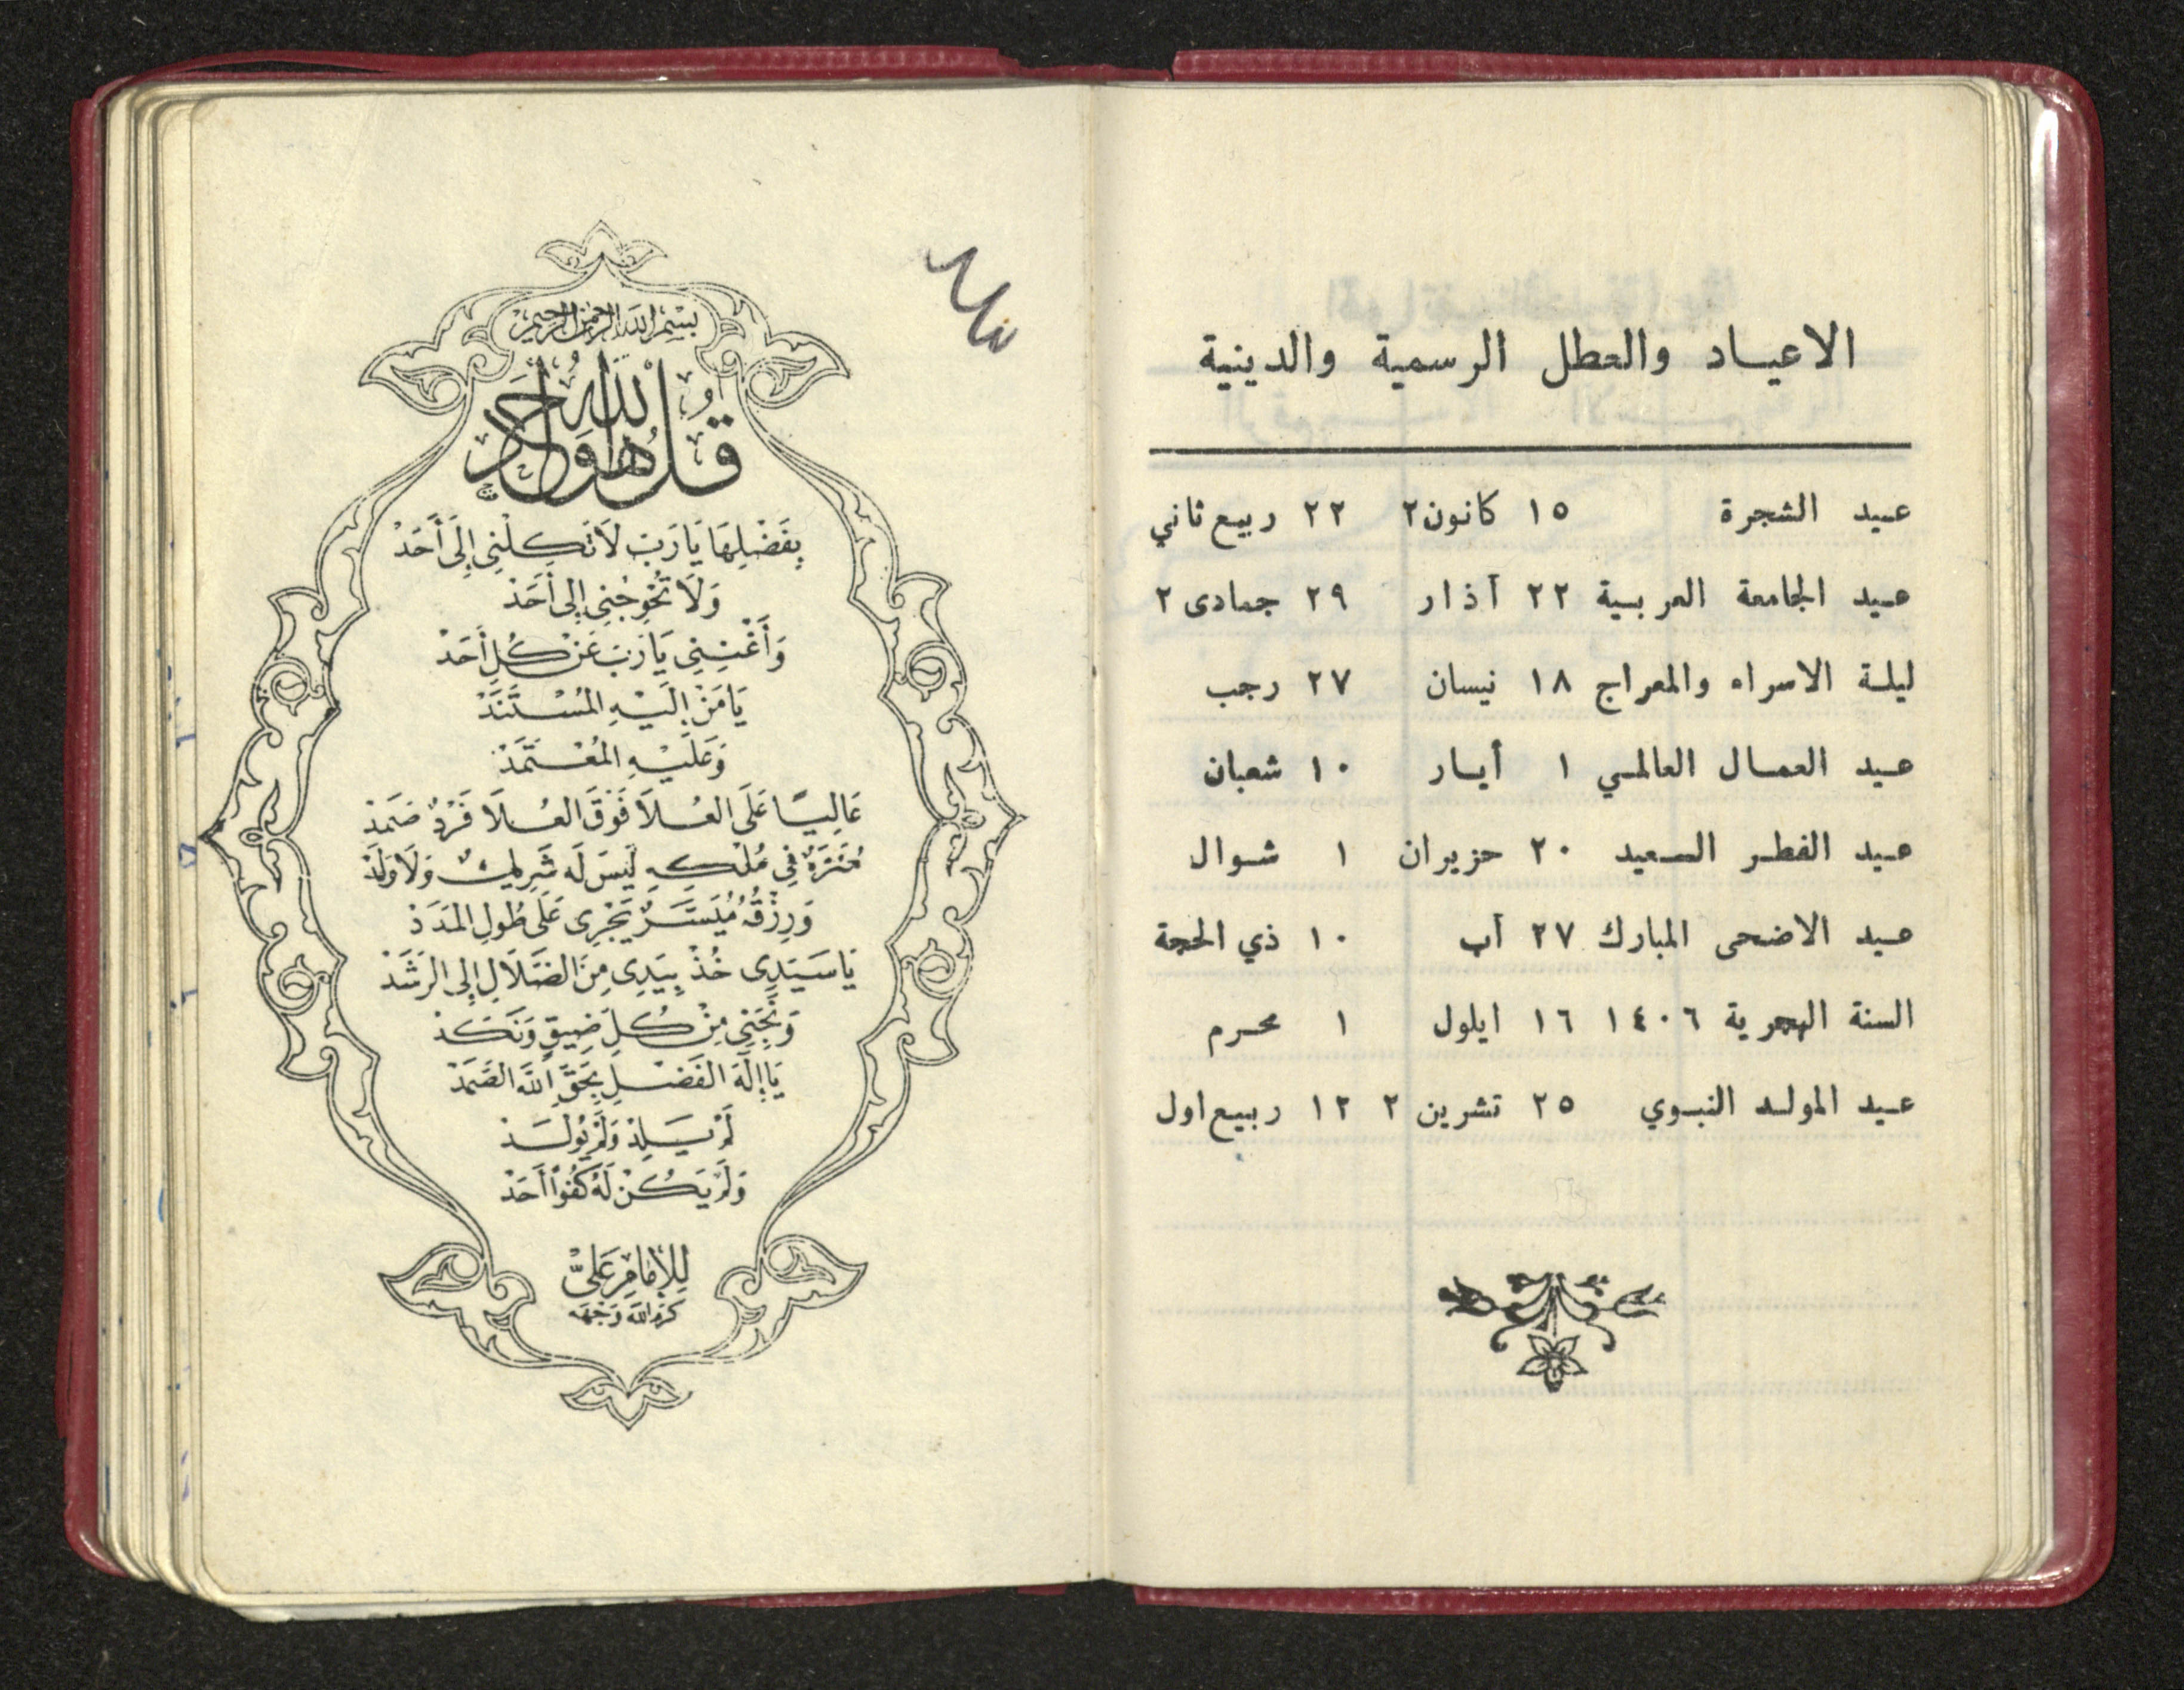 الاعياد والعطل الرسمية والدينية
عيد الشجرة ١٥ كانون٢ ٢٢ ربيع ثاني
عيد الجامعة العربية ٢٢ آذار ٢٩ جمادى ٢
ليلة الاسراء والمعراج ١٨ نيسان ٢٧ رجب
عيد العمال العالمي ١ أيار ١٠ شعبان
عيد الفطر السعيد ٢٠ حزيران ١ شوال
عيد الاضحى المبارك ٢٧ آب ١٠ ذي الحجة
السنة الهجرية ١٤٠٦ ١٦ ايلول ١ محرم
عيد المولد النبوي ٢٥ تشرين ٢ ١٢ ربيع اول
بِسْمِ اللهِ الرَّحْمٰنِ الرَّحِيمِ
قُلْ هُوَ اللهُ أَحَدٌ
بِفَضْلِهَا يَا رَبِّ لَا تَكِلْنِي إِلَى أَحَدْ
وَلَا تُحْوِجْنِي إِلَى أَحَدْ
وَأَغْنِنِي يَا رَبِّ عَنْ كُلِّ أَحَدْ
يَا مَنْ إِلَيْهِ الْمُسْتَنَدْ
وَعَلَيْهِ الْمُعْتَمَدْ
عَالِيًا عَلَى الْعُلَا فَوْقَ الْعُلَا فَرْدٌ صَمَدْ
مُنَزَّهٌ فِي مُلْكِهِ لَيْسَ لَهُ شَرِيكٌ وَلَا وَلَدْ
وَرِزْقُهُ مُيَسَّرٌ يَجْرِي عَلَى طُولِ الْمَدَدْ
يَا سَيِّدِي خُذْ بِيَدِي مِنَ الضَّلَالِ إِلَى الرَّشَدْ
وَنَجِّنِي مِنْ كُلِّ ضِيقٍ وَنَكَدْ
يَا إِلٰهَ الْفَضْلِ بِحَقِّ اللهِ الصَّمَدْ
لَمْ يَلِدْ وَلَمْ يُولَدْ
وَلَمْ يَكُنْ لَهُ كُفُوًا أَحَدْ
لِلْإِمَامِ عَلِيّ
كَرَّمَ اللهُ وَجْهَهُ